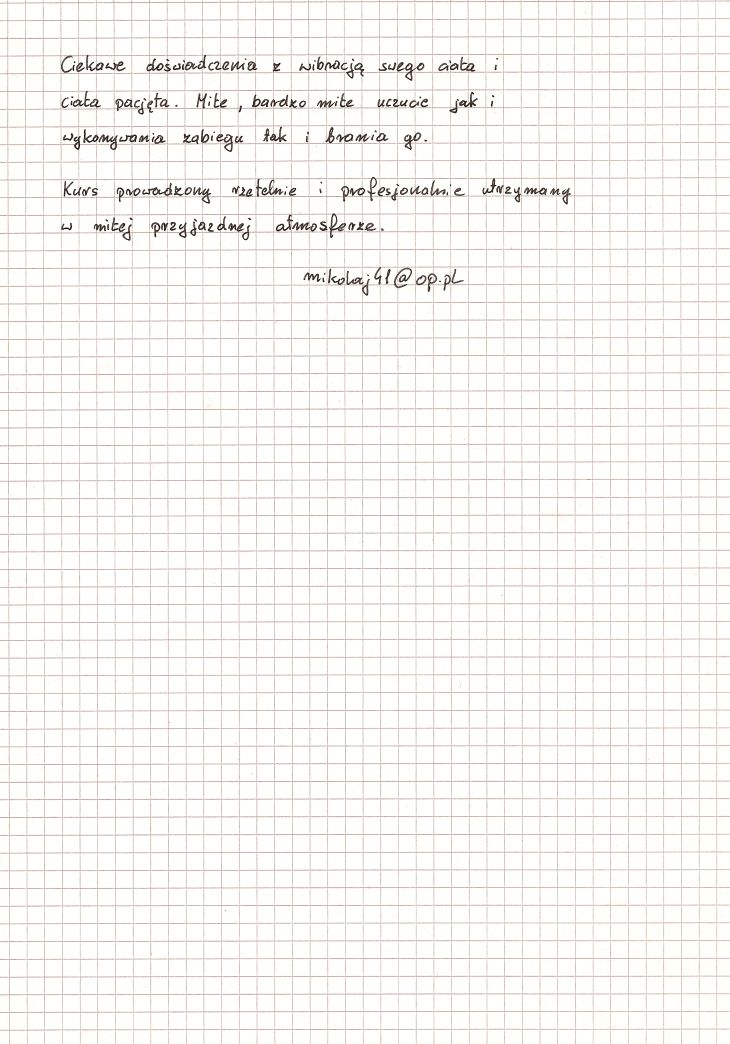 Ciekawe doświadczenia z wibracją swego ciała i
ciała pacjęta. Miłe, bardzo miłe uczucie jak i
wykonywania zabiegu tak i brania go.
Kurs prowadzony rzetelnie i profesjonalnie utrzymany
w miłej przyjazdnej atmosferze.
mikolaj41@op.pl